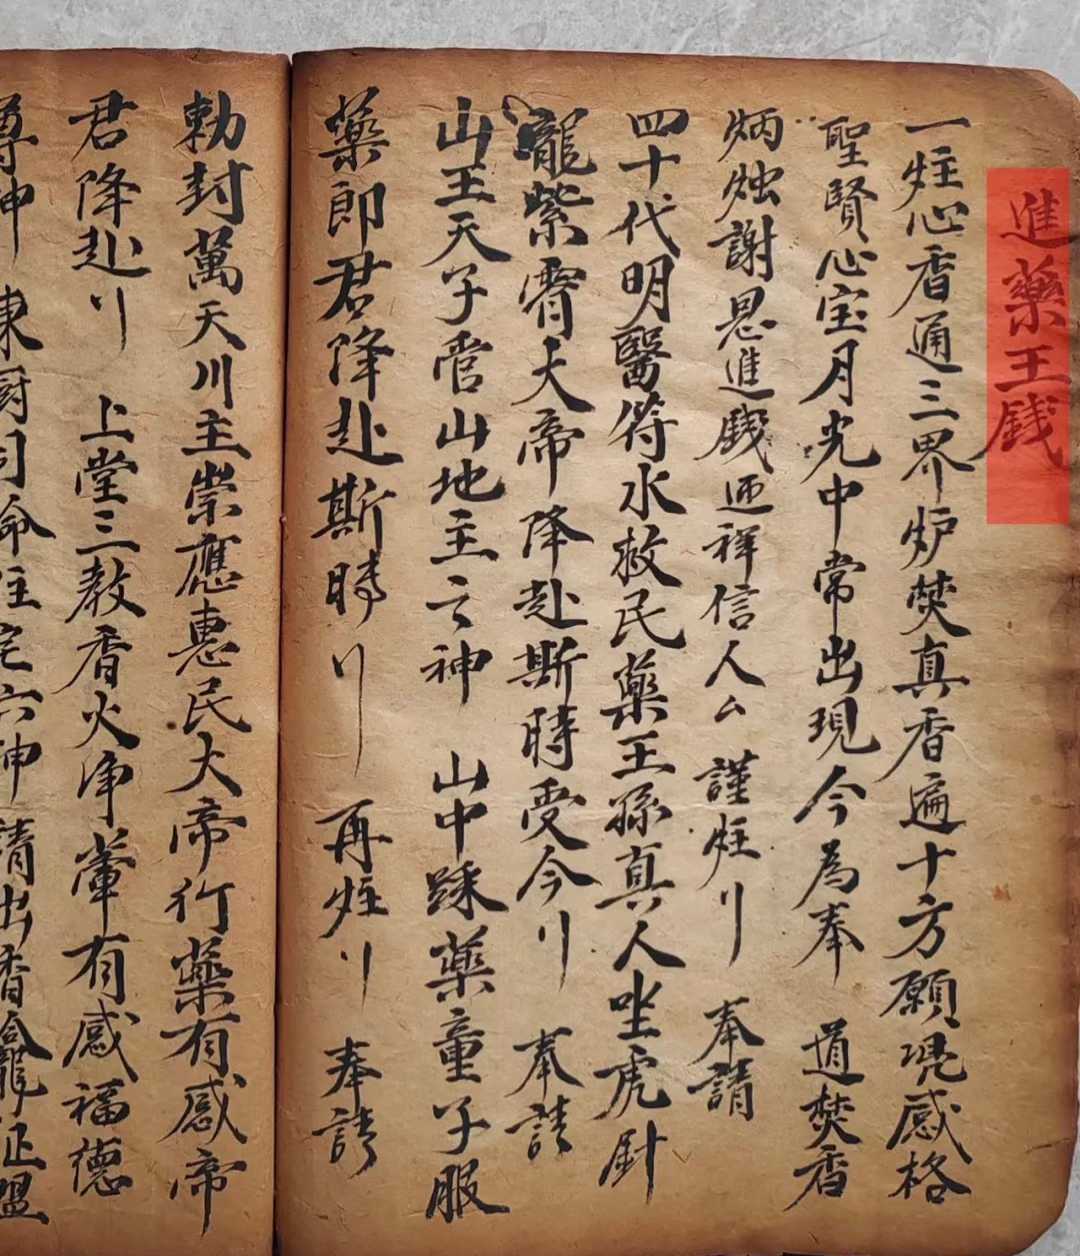 進藥王錢
一炷心香通三界炉焚真香遍十方願児感格
聖賢心宝月光中常出現今為奉 道焚香
炳烛謝恩進錢迊祥信人厶 謹炷刂 奉請
四十代明醫符水救民藥王孫真人坐虎針
龍紫霄大帝降赴斯時受今刂 奉請
山王天子管山地主之神 山中踩藥童子服
藥郎君降赴斯時刂 再炷刂 奉請
勅封萬天川主崇應惠民大帝行藥有感帝
君降赴刂 上堂三教香火净葷有感福德
尊神 東厨司命住宅六神 請出香龕证盟